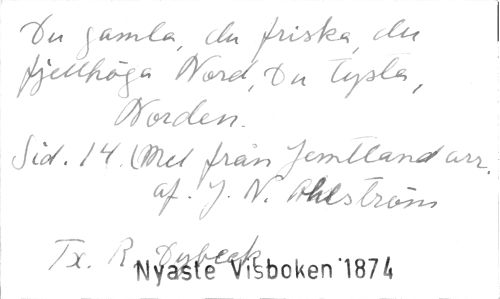 Du gamla, du friska, du
fjellhöga Nord, Du tysta,
Norden.
Sid. 14. (Mel från Jemtland arr.
af. J. N. Ahlström
Tx. R. Dybeck
Nyaste Visboken 1874